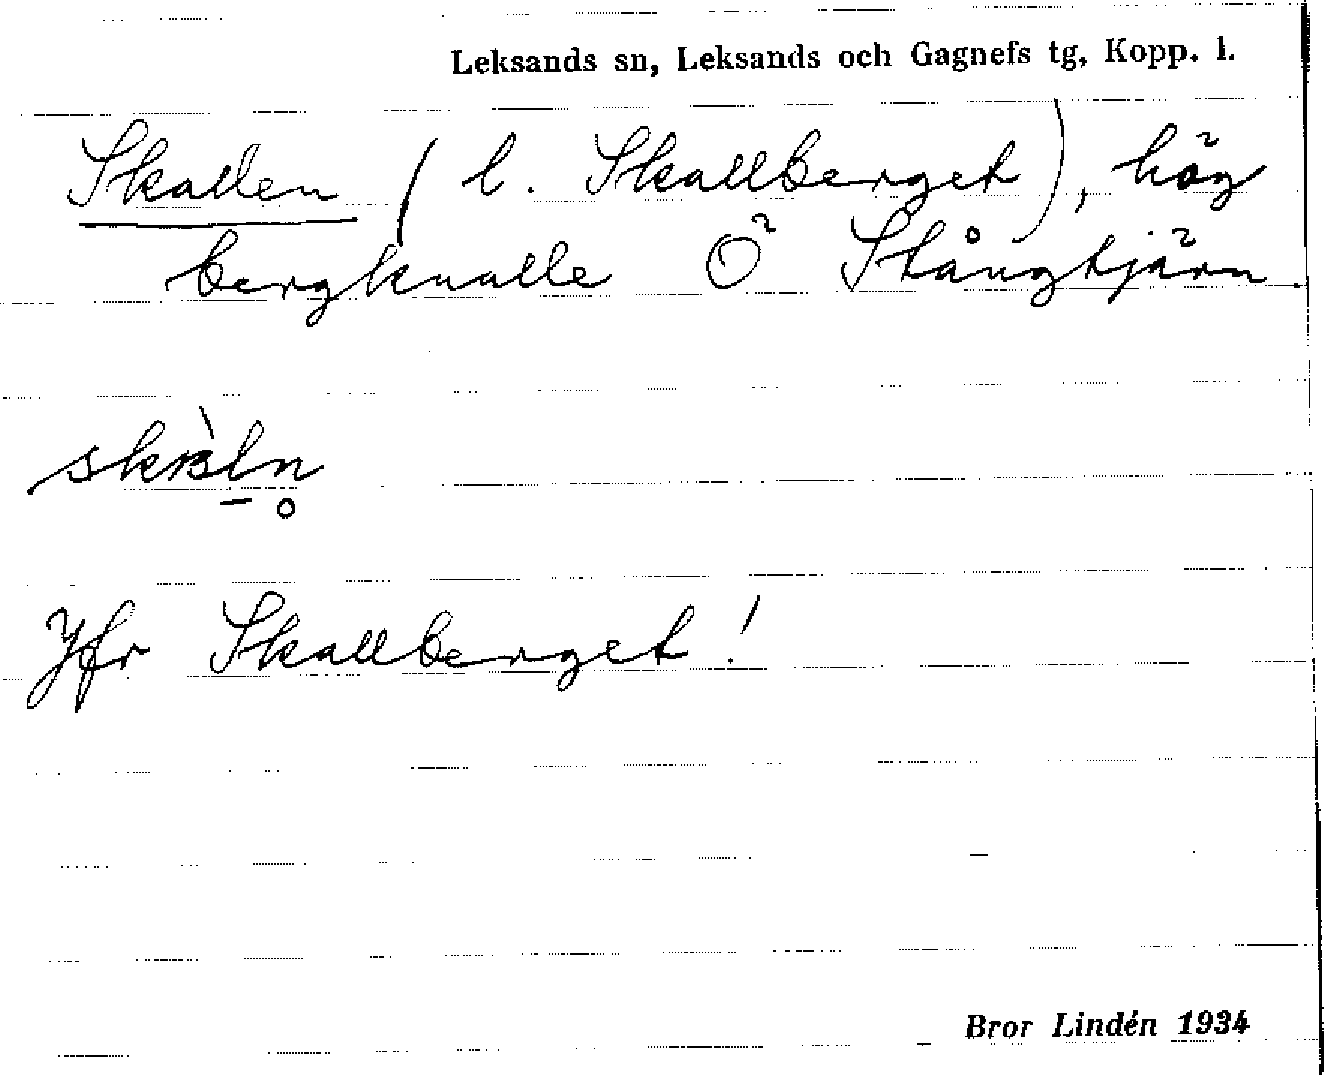 Leksands sn, Leksands och Gagnefs tg, Kopp. l.
Skallen (l. Skallberget), hög
bergknalle Ö Stångtjärn
Jfr Skallberget!
Bror Lindén 1934